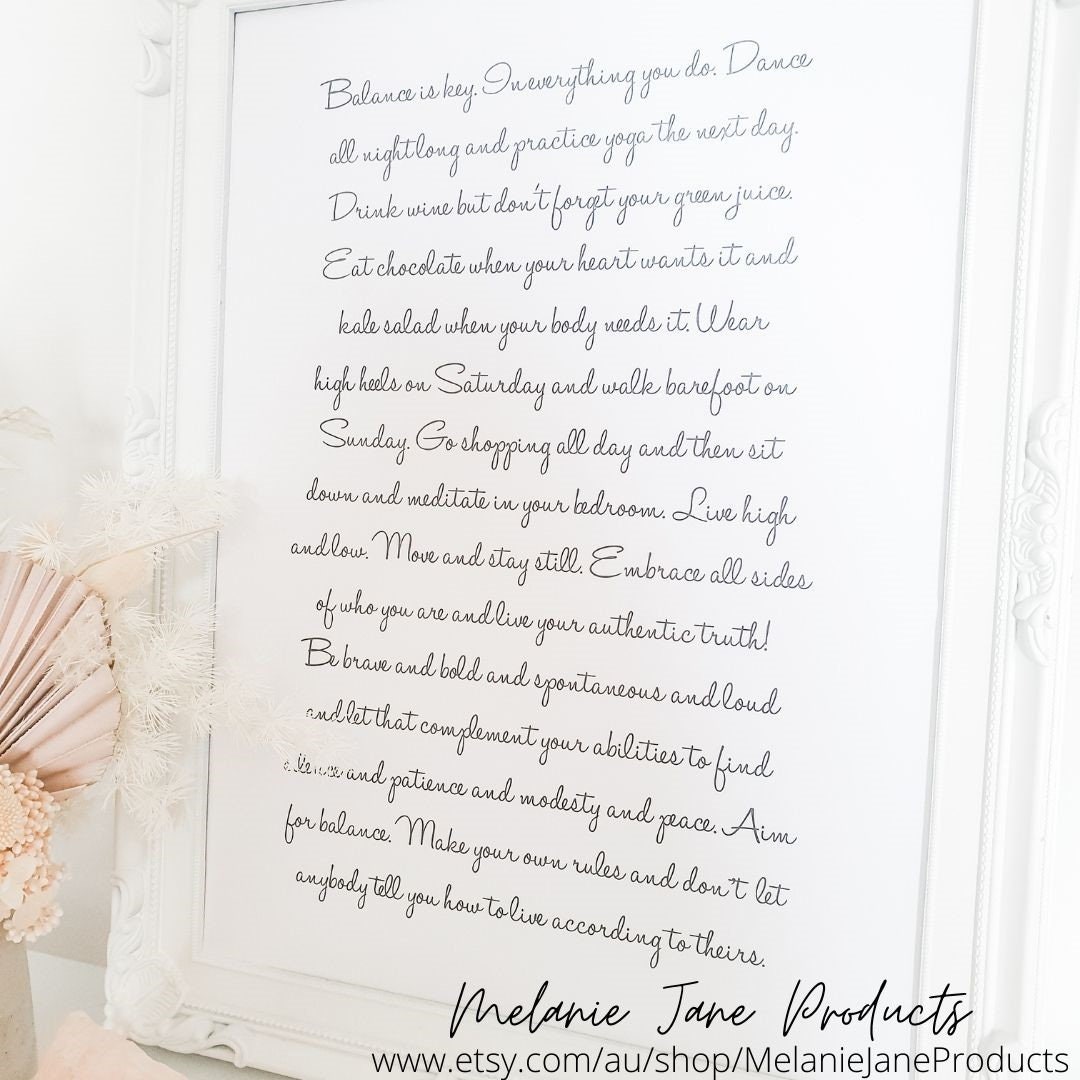 Balance is key. In everything you do. Dance
all night long and practice yoga the next day.
Drink wine but don't forget your green juice.
Eat chocolate when your heart wants it and
kale salad when your body needs it. Wear
high heels on Saturday and walk barefoot on
Sunday. Go shopping all day and then sit
down and meditate in your bedroom. Live high
and low. Move and stay still. Embrace all sides
of who you are and live your authentic truth!
Be brave and bold and spontaneous and loud
and let that complement your abilities to find
silence and patience and modesty and peace. Aim
for balance. Make your own rules and don't let
anybody tell you how to live according to theirs.
Melanie Jane Products
www.etsy.com/au/shop/MelanieJaneProducts